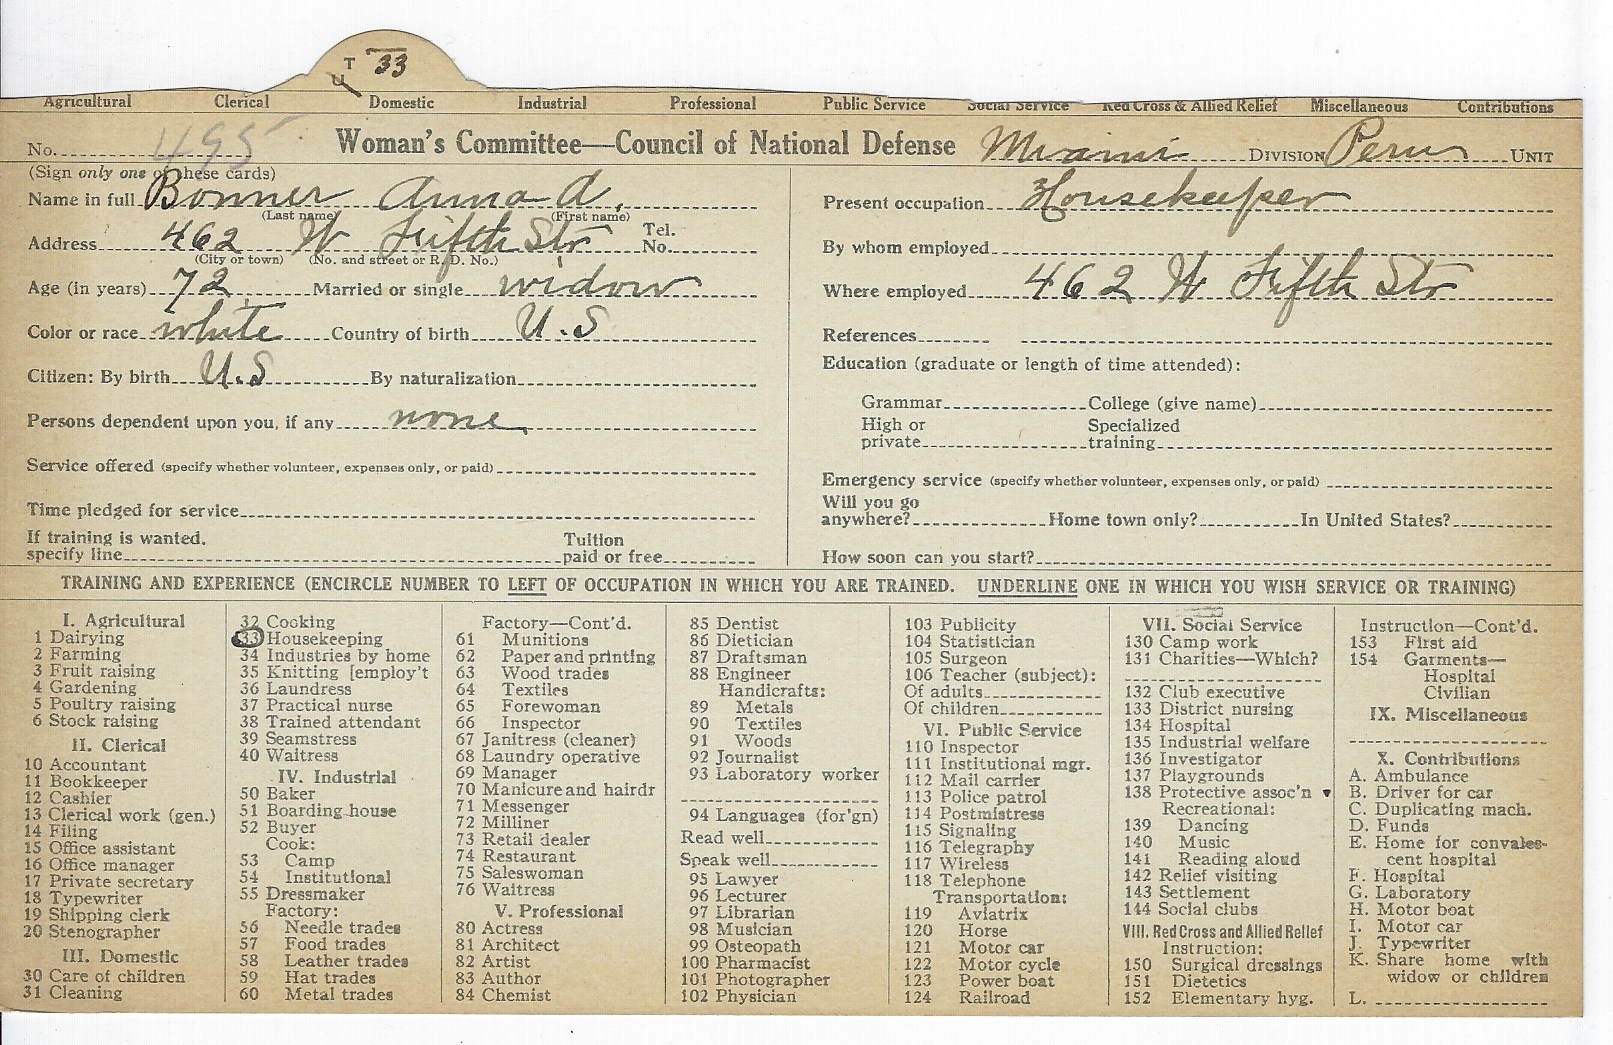 T 33
U
Agricultural Clerical Domestic Industrial Professional Public Service Social Service Red Cross & Allied Relief Miscellaneous Contributions
No. 495 Woman's Committee—Council of National Defense Miami DIVISION Peru UNIT
(Sign only one of these cards)
Name in full Bonner Anna A.
(Last name) (First name)
Address 462 W Fifth Str Tel. No.
(City or town) (No. and street or R. D. No.)
Age (in years) 72 Married or single widow
Color or race white Country of birth U.S
Citizen: By birth U.S By naturalization
Persons dependent upon you, if any none
Service offered (specify whether volunteer, expenses only, or paid)
Time pledged for service
If training is wanted, specify line Tuition paid or free
Present occupation Housekeeper
By whom employed
Where employed 462 W Fifth Str
References
Education (graduate or length of time attended):
Grammar College (give name)
High or private Specialized training
Emergency service (specify whether volunteer, expenses only, or paid)
Will you go anywhere? Home town only? In United States?
How soon can you start?
TRAINING AND EXPERIENCE (ENCIRCLE NUMBER TO LEFT OF OCCUPATION IN WHICH YOU ARE TRAINED. UNDERLINE ONE IN WHICH YOU WISH SERVICE OR TRAINING)
I. Agricultural
1 Dairying
2 Farming
3 Fruit raising
4 Gardening
5 Poultry raising
6 Stock raising
II. Clerical
10 Accountant
11 Bookkeeper
12 Cashier
13 Clerical work (gen.)
14 Filing
15 Office assistant
16 Office manager
17 Private secretary
18 Typewriter
19 Shipping clerk
20 Stenographer
III. Domestic
30 Care of children
31 Cleaning
32 Cooking
33 Housekeeping
34 Industries by home
35 Knitting [employ't
36 Laundress
37 Practical nurse
38 Trained attendant
39 Seamstress
40 Waitress
IV. Industrial
50 Baker
51 Boarding-house
52 Buyer
Cook:
53 Camp
54 Institutional
55 Dressmaker
Factory:
56 Needle trades
57 Food trades
58 Leather trades
59 Hat trades
60 Metal trades
Factory—Cont'd.
61 Munitions
62 Paper and printing
63 Wood trades
64 Textiles
65 Forewoman
66 Inspector
67 Janitress (cleaner)
68 Laundry operative
69 Manager
70 Manicure and hairdr
71 Messenger
72 Milliner
73 Retail dealer
74 Restaurant
75 Saleswoman
76 Waitress
V. Professional
80 Actress
81 Architect
82 Artist
83 Author
84 Chemist
85 Dentist
86 Dietician
87 Draftsman
88 Engineer
Handicrafts:
89 Metals
90 Textiles
91 Woods
92 Journalist
93 Laboratory worker
94 Languages (for'gn)
Read well
Speak well
95 Lawyer
96 Lecturer
97 Librarian
98 Musician
99 Osteopath
100 Pharmacist
101 Photographer
102 Physician
103 Publicity
104 Statistician
105 Surgeon
106 Teacher (subject):
Of adults
Of children
VI. Public Service
110 Inspector
111 Institutional mgr.
112 Mail carrier
113 Police patrol
114 Postmistress
115 Signaling
116 Telegraphy
117 Wireless
118 Telephone
Transportation:
119 Aviatrix
120 Horse
121 Motor car
122 Motor cycle
123 Power boat
124 Railroad
VII. Social Service
130 Camp work
131 Charities—Which?
132 Club executive
133 District nursing
134 Hospital
135 Industrial welfare
136 Investigator
137 Playgrounds
138 Protective assoc'n
Recreational:
139 Dancing
140 Music
141 Reading aloud
142 Relief visiting
143 Settlement
144 Social clubs
VIII. Red Cross and Allied Relief
Instruction:
150 Surgical dressings
151 Dietetics
152 Elementary hyg.
Instruction—Cont'd.
153 First aid
154 Garments—
Hospital
Civilian
IX. Miscellaneous
X. Contributions
A. Ambulance
B. Driver for car
C. Duplicating mach.
D. Funds
E. Home for convales-
cent hospital
F. Hospital
G. Laboratory
H. Motor boat
I. Motor car
J. Typewriter
K. Share home with
widow or children
L.